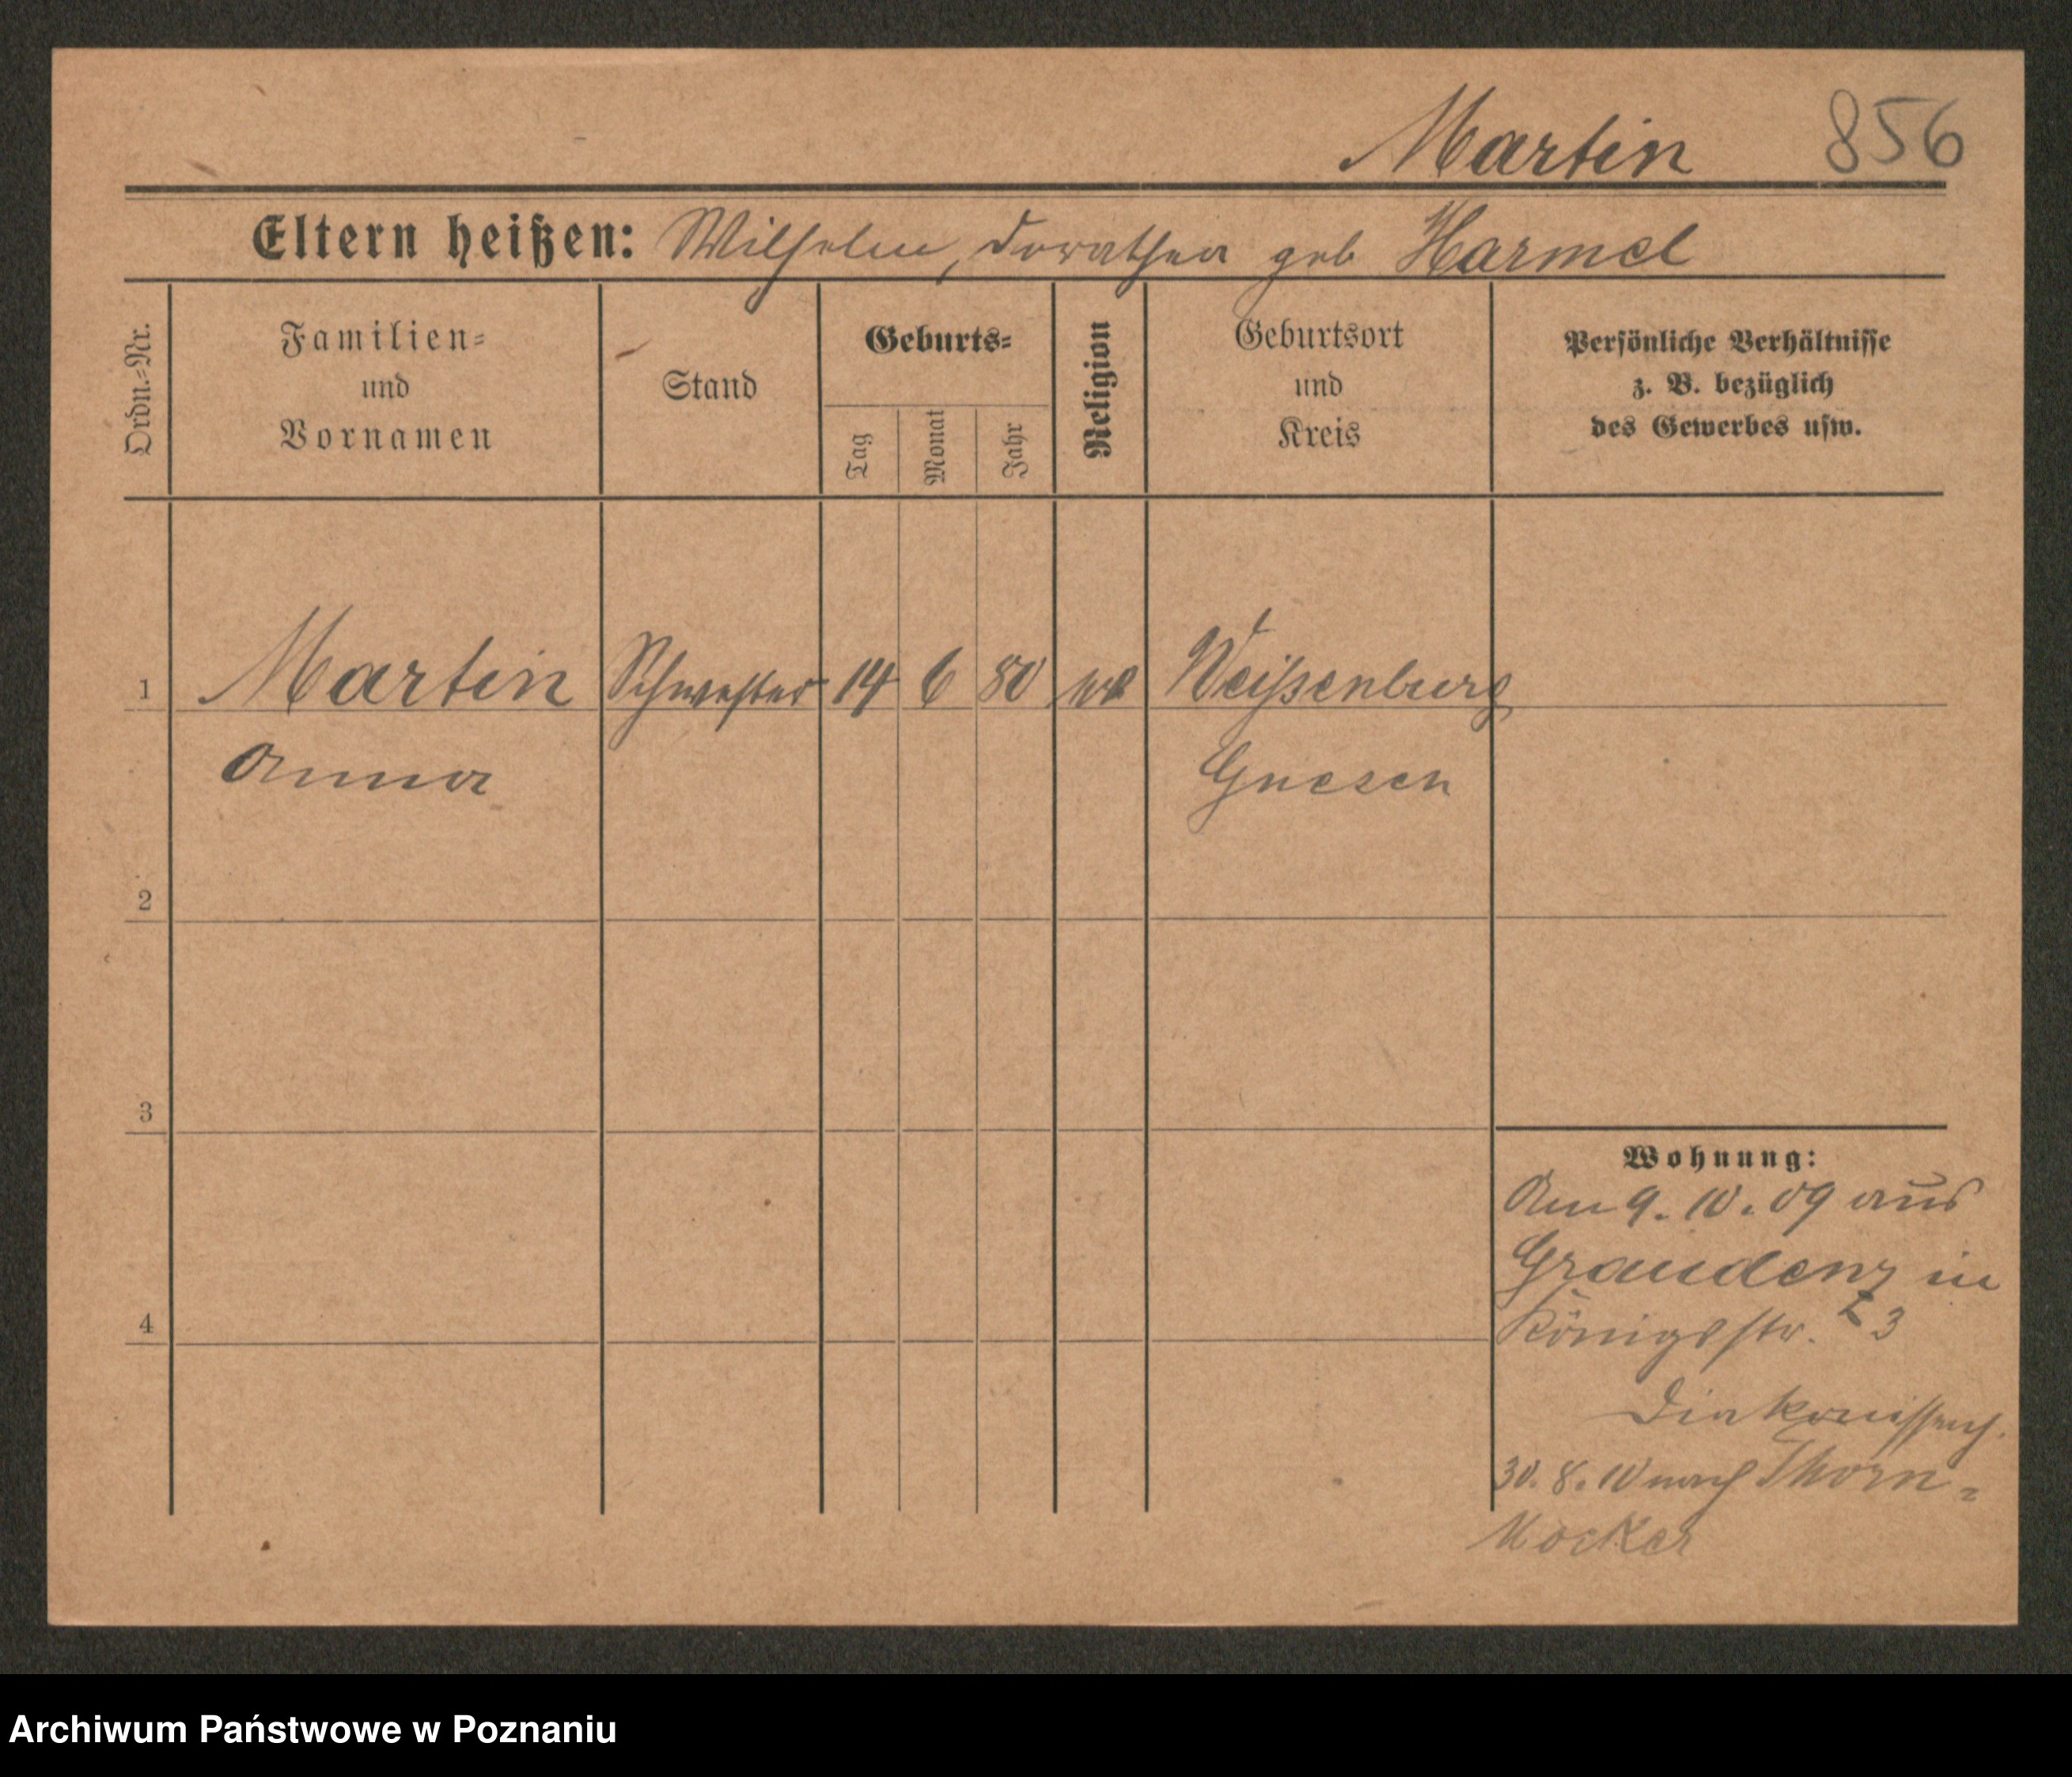 Martin 856
Eltern heißen: Wilhelm, Dorothea geb Harmel
Ordn.-Nr.
Familien-
und
Vornamen
Stand
Geburts-
Tag
Monat
Jahr
Religion
Geburtsort
und
Kreis
Persönliche Verhältnisse
z. B. bezüglich
des Gewerbes usw.
1 Martin Schwester 14 6 80 Weißenburg
Anna Gnesen
2
3
4
Wohnung:
Am 9. 10. 09 aus
Graudenz in
Königsstr. 3
Diakonissenh.
30. 8. 10 nach Thorn-
Mocker
Archiwum Państwowe w Poznaniu